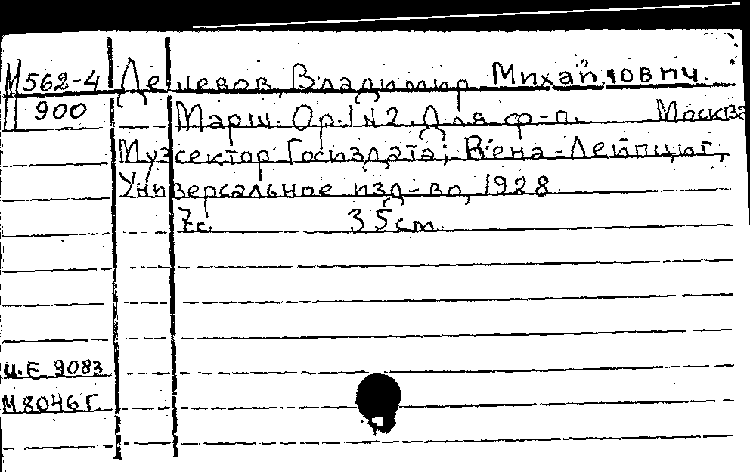 М562-4 Дешевов, Владимир Михайлович.
900 Марш. Op. 1 N 2. Для ф-п. Москва
Музсектор Госиздата; Вена-Лейпциг,
Универсальное изд-во, 1928
7с. 35см.
И.Е 9083
М8046Г